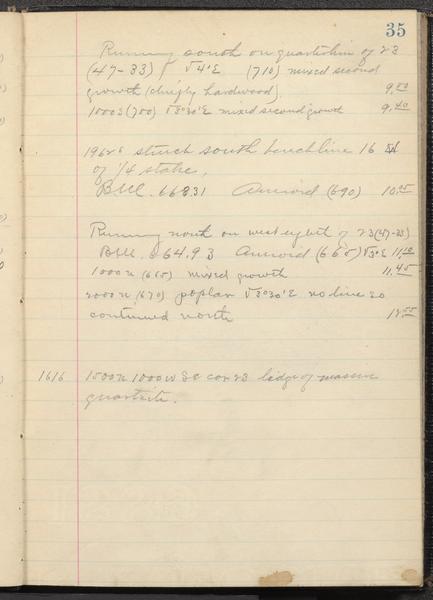 35
Running south on quarterline of 23
(47-33) √4°E (710) mixed second
growth (chiefly hardwood). 9.00
1000 S (700) √3°30'E mixed second growth 9.40
1962 S struck south benchline 16
of 1/4 stake,
B.M. 668.31 Aneroid (690) 10.05
Running north on west eighth of 23 (47-33)
B.M. 664.93 Aneroid (665) √3°E 11.10
1000 N (665) mixed growth 11.45
2000 N (670) poplar √3°30'E no line so
continued north 12.00
1616 1500 N 1000 W SE cor 23 ledge of massive
quartzite.